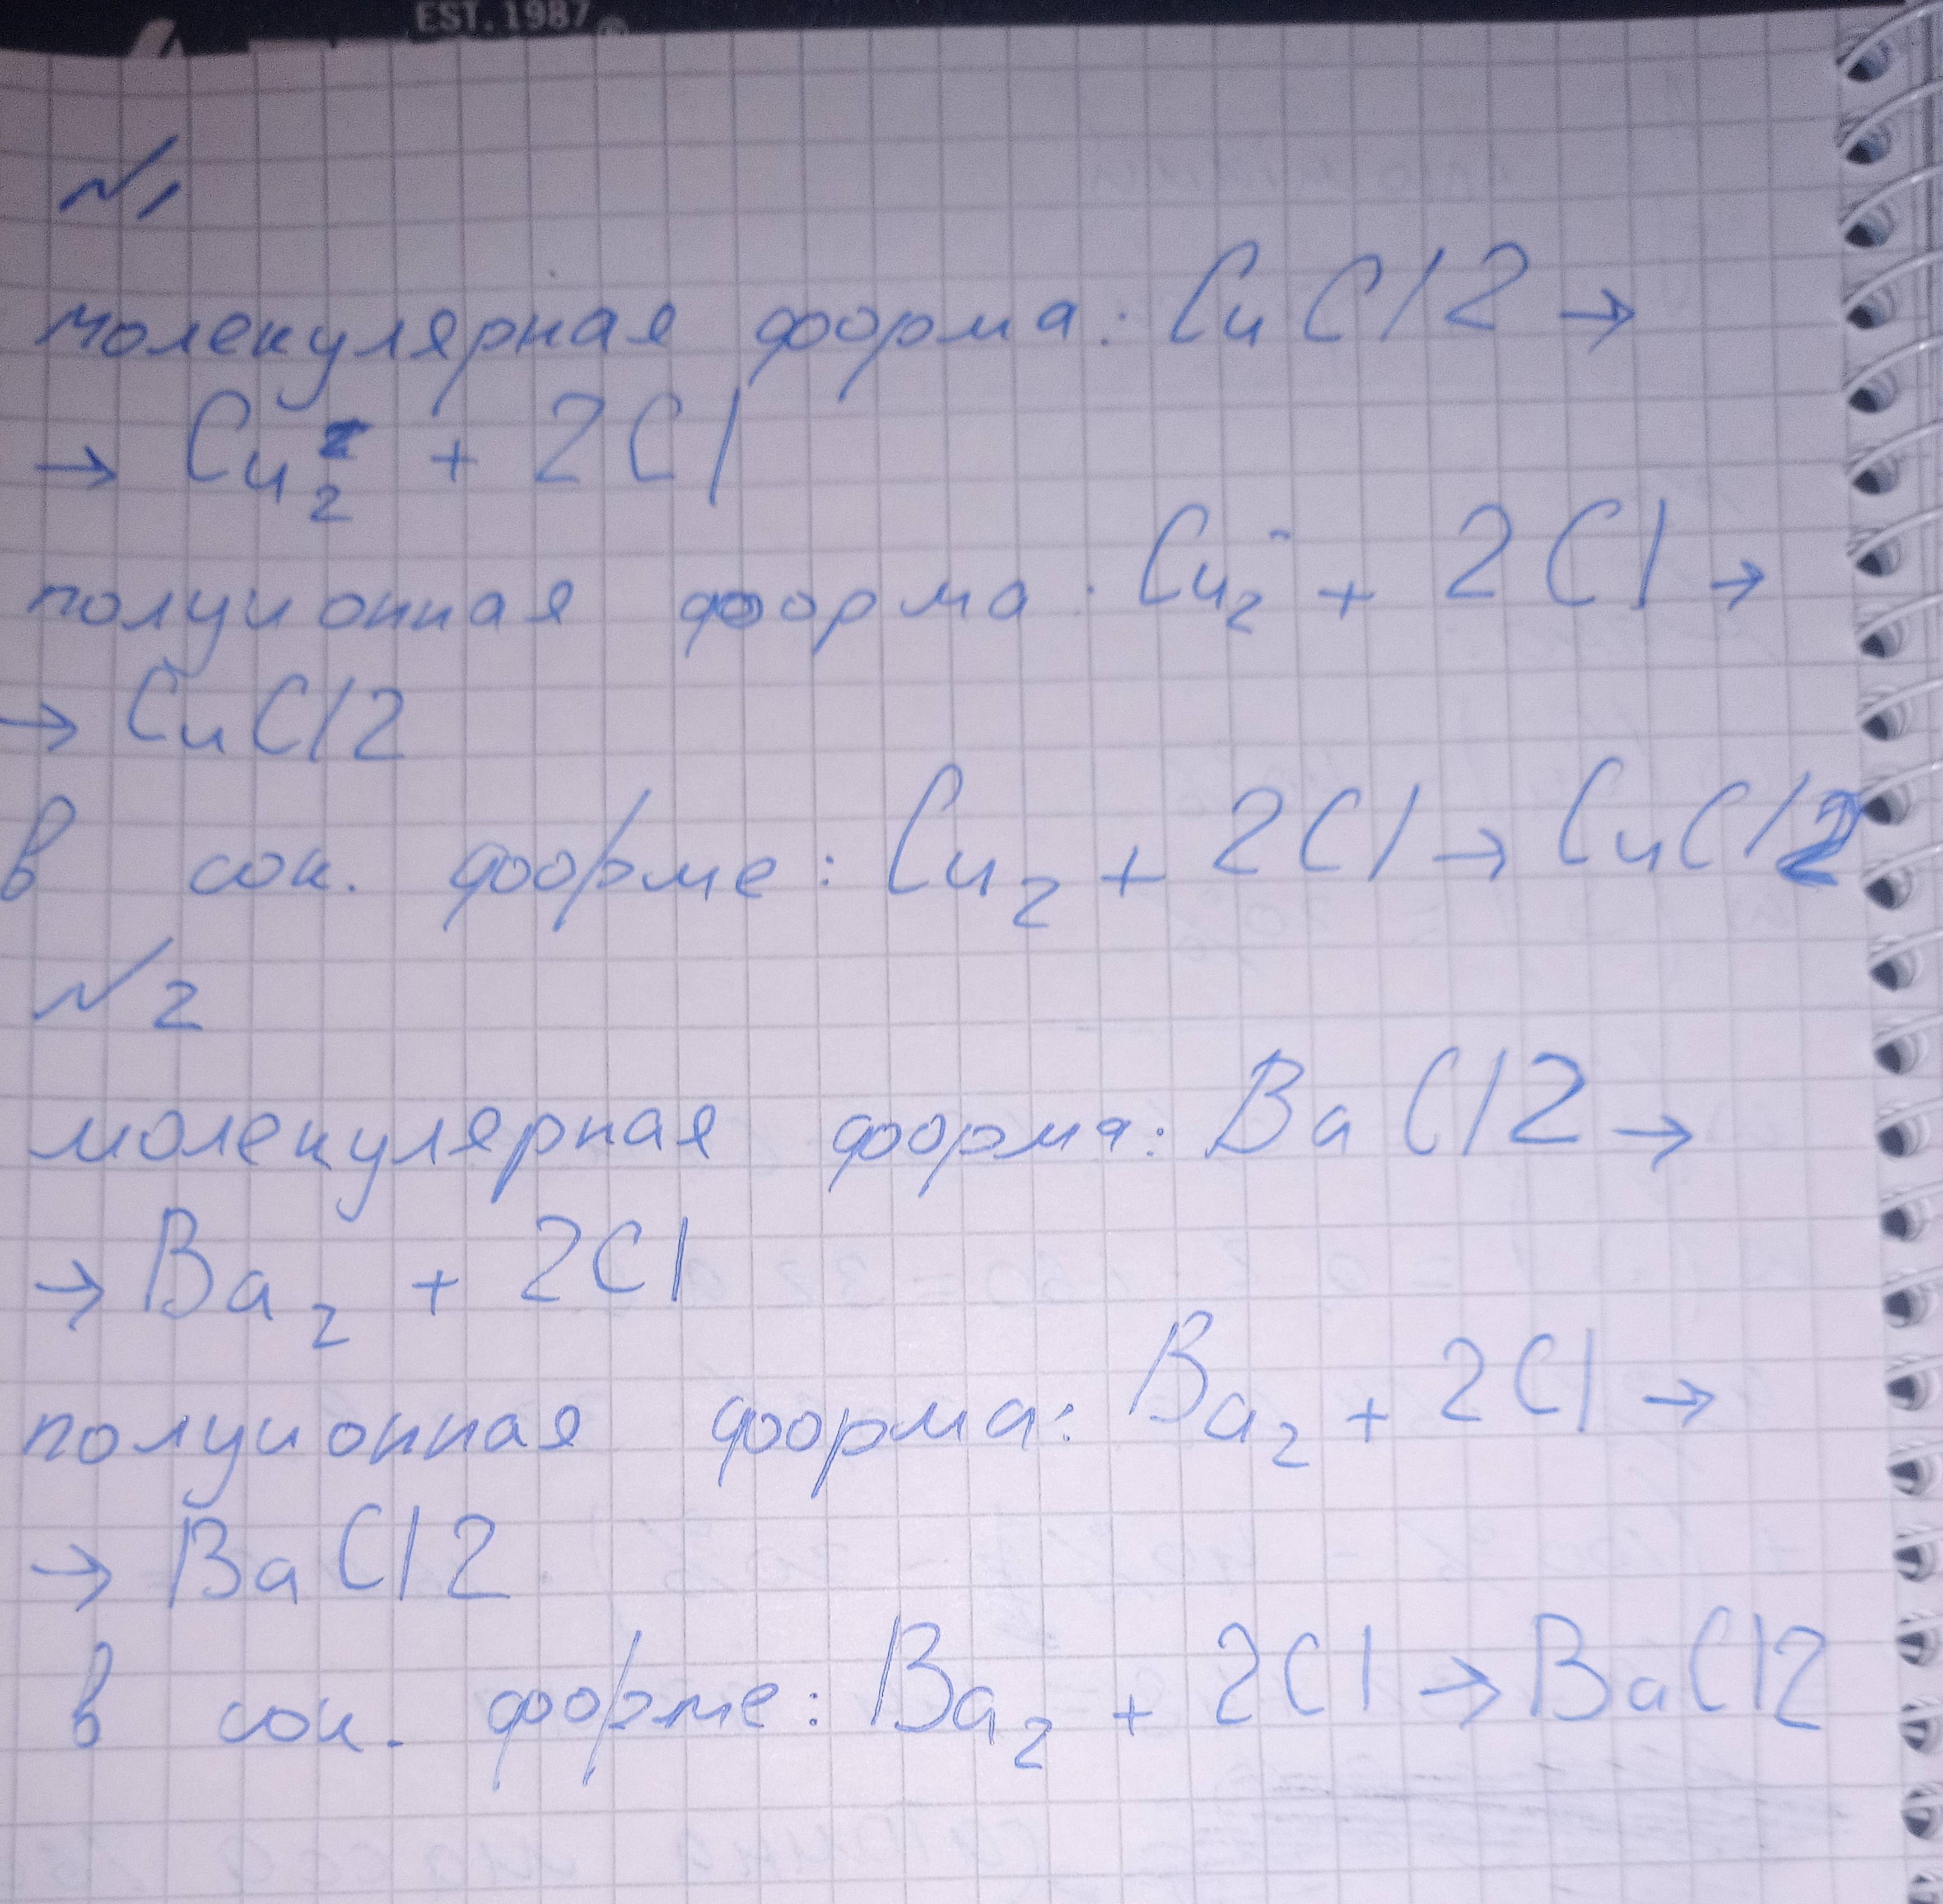 EST. 1987
№1
молекулярная форма: CuCl2 →
→ Cu₂ + 2Cl
полуионная форма: Cu₂⁻ + 2Cl →
→ CuCl2
в сок. форме: Cu₂ + 2Cl → CuCl2
№2
молекулярная форма: BaCl2 →
→ Ba₂ + 2Cl
полуионная форма: Ba₂ + 2Cl →
→ BaCl2
в сок. форме: Ba₂ + 2Cl → BaCl2